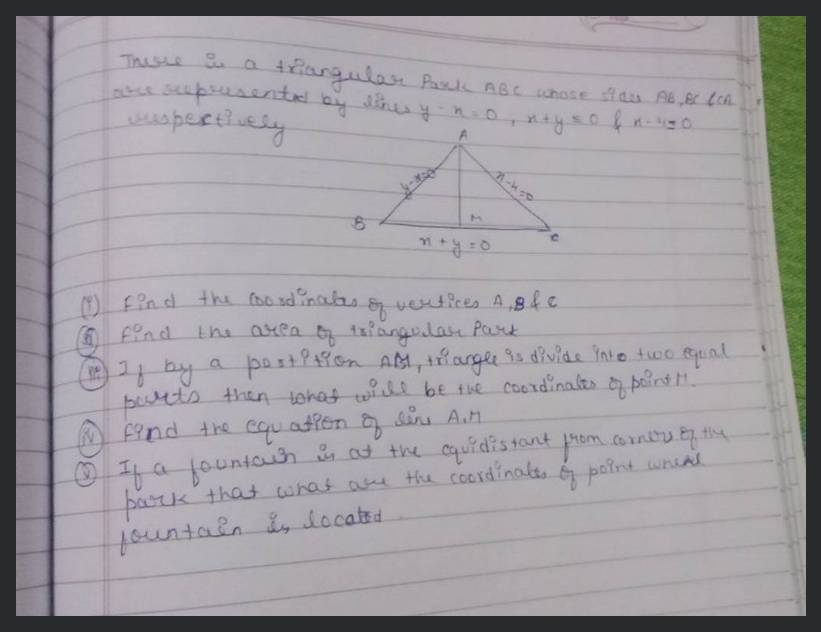 There is a triangular Park ABC whose sides AB, BC & CA
are represented by lines y - x = 0, x + y = 0 & x - 4 = 0
respectively
A
y - x = 0
x - 4 = 0
B
M
C
x + y = 0
(i) Find the coordinates of vertices A, B & C
(ii) Find the area of triangular Park
(iii) If by a partition AM, triangle is divide into two equal
parts then what will be the coordinates of point M.
(iv) Find the equation of line A.M
(v) If a fountain is at the equidistant from corners of the
park that what are the coordinates of point where
fountain is located.